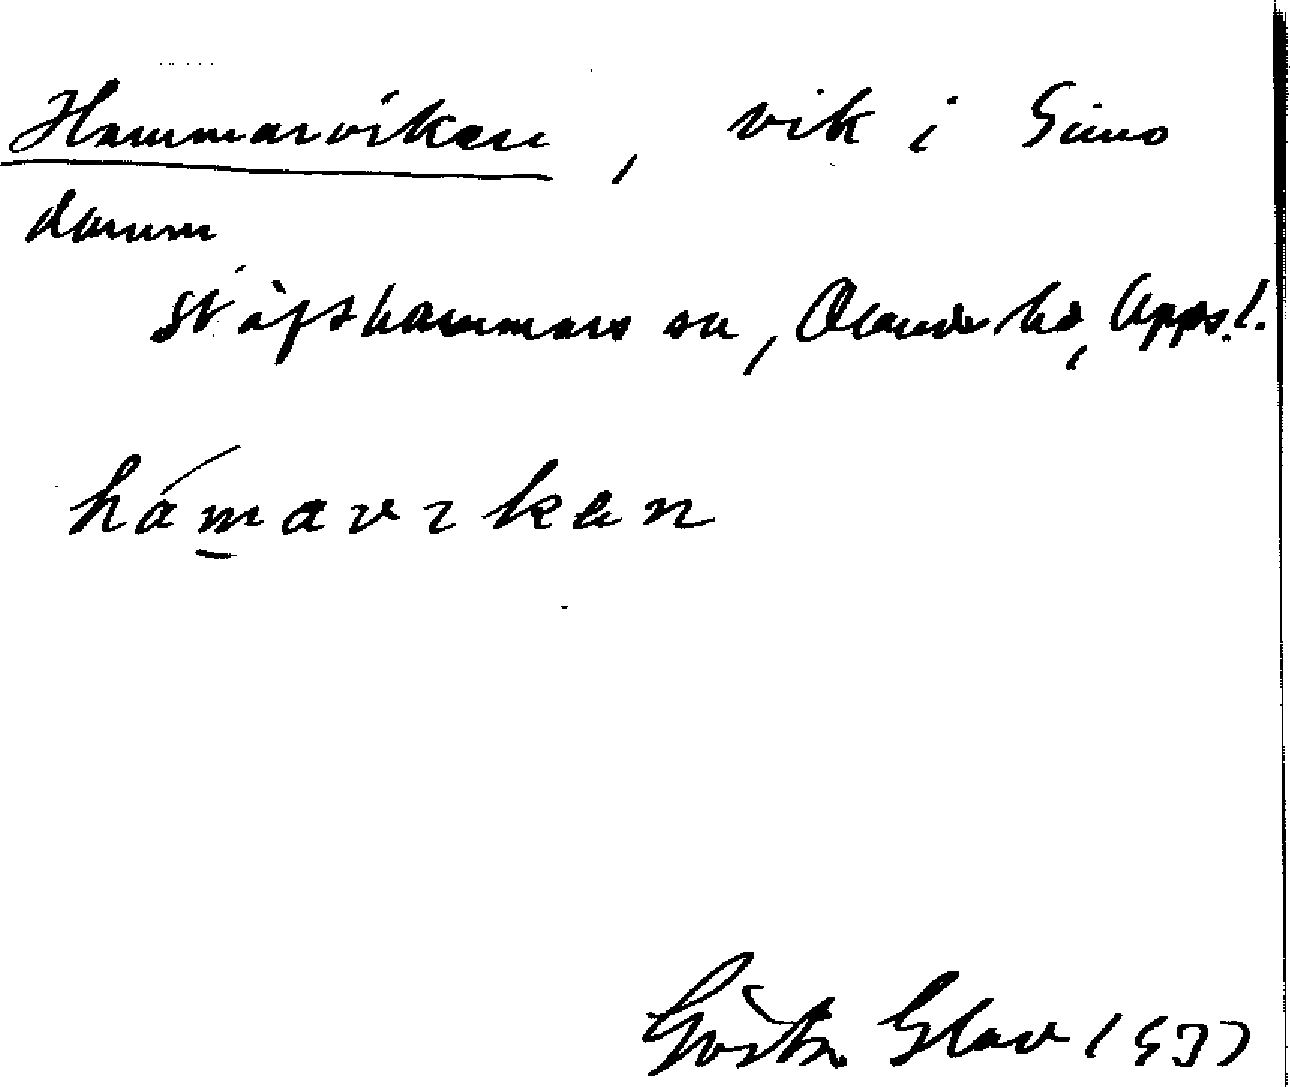 Hammarviken, vik i Gimo
damm
Skäfthammars sn, Olands hd, Upps.l.
hámavikan
Gösta Glav 1937